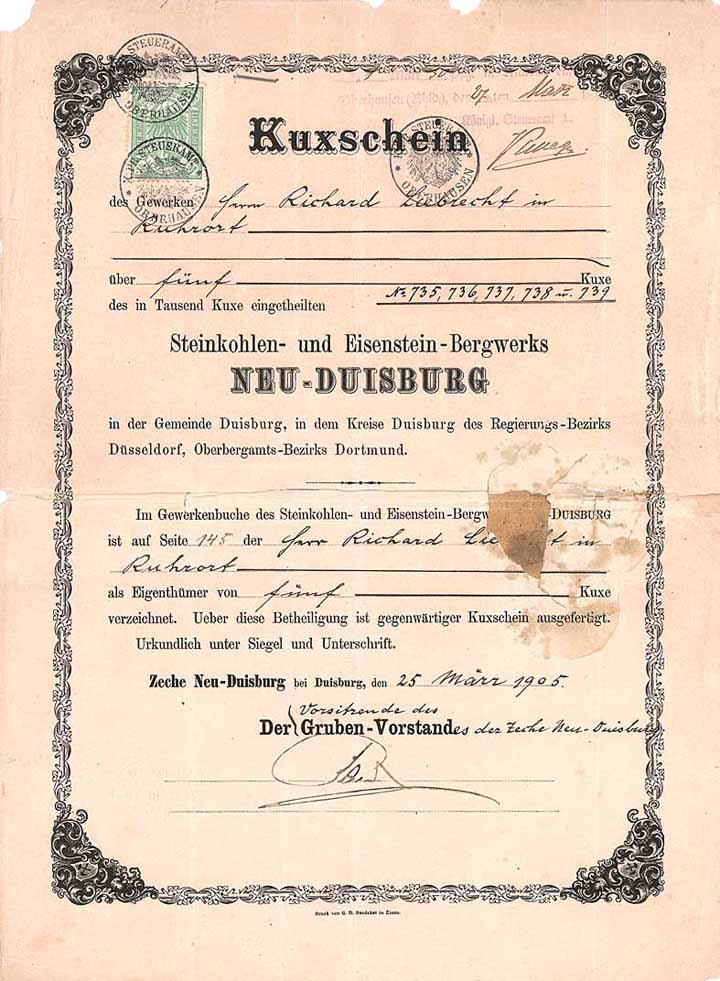 K. PR. STEUERAMT
OBERHAUSEN
K. PR. STEUERAMT
OBERHAUSEN
K. PR. STEUERAMT
OBERHAUSEN
Oberhausen (Rhld), den 27 ten März
Königl. Steueramt I.
Kuxschein
des Gewerken Herrn Richard Liebrecht in
Ruhrort
über fünf Kuxe
des in Tausend Kuxe eingetheilten No 735, 736, 737, 738 u. 739
Steinkohlen- und Eisenstein-Bergwerks
NEU-DUISBURG
in der Gemeinde Duisburg, in dem Kreise Duisburg des Regierungs-Bezirks
Düsseldorf, Oberbergamts-Bezirks Dortmund.
Im Gewerkenbuche des Steinkohlen- und Eisenstein-Bergw -DUISBURG
ist auf Seite 145 der Herr Richard Lie ht in
Ruhrort
als Eigenthümer von fünf Kuxe
verzeichnet. Ueber diese Betheiligung ist gegenwärtiger Kuxschein ausgefertigt.
Urkundlich unter Siegel und Unterschrift.
Zeche Neu-Duisburg bei Duisburg, den 25 März 1905.
Vorsitzende des
Der Gruben-Vorstandes der Zeche Neu-Duisburg
Druck von G. D. Baedeker in Essen.